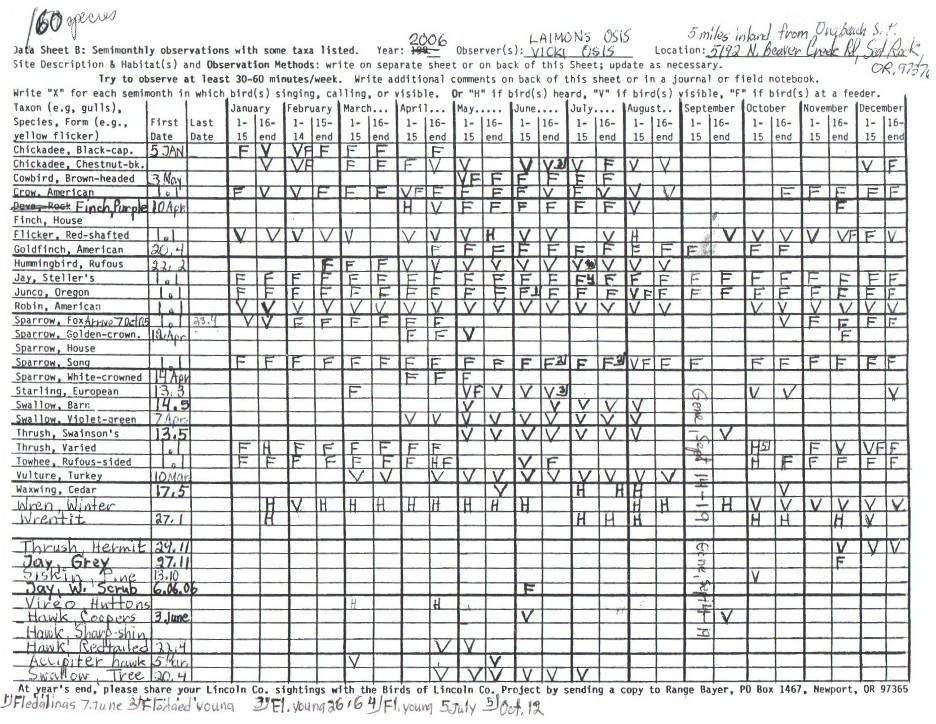 160 species
Data Sheet B: Semimonthly observations with some taxa listed. Year: 2006 Observer(s): LAIMONS OSIS VICKI OSIS Location: 5 miles inland from Ona Beach S.P. 5192 N. Beaver Creek Rd, Seal Rock, OR, 97376
Site Description & Habitat(s) and Observation Methods: write on separate sheet or on back of this Sheet; update as necessary.
Try to observe at least 30-60 minutes/week. Write additional comments on back of this sheet or in a journal or field notebook.
Write "X" for each semimonth in which bird(s) singing, calling, or visible. Or "H" if bird(s) heard, "V" if bird(s) visible, "F" if bird(s) at a feeder.
Taxon (e.g, gulls), January February March... April... May..... June.... July.... August.. September October November December
Species, Form (e.g., First Last 1- 16- 1- 16- 1- 16- 1- 16- 1- 16- 1- 16- 1- 16- 1- 16- 1- 16- 1- 16- 1- 16- 1- 16-
yellow flicker) Date Date 15 end 14 end 15 end 15 end 15 end 15 end 15 end 15 end 15 end 15 end 15 end 15 end
Chickadee, Black-cap. 5 JAN F V VF F F F F
Chickadee, Chestnut-bk. V VF F F F V V V V F V V V F
Cowbird, Brown-headed 3 May VF F F F F F
Crow, American 1.1 F V V F F F VF F F F F V F V V V F F F F F
Dove, Rock Finch, Purple 10 Apr H V F F F F F F V F
Finch, House
Flicker, Red-shafted 1.1 V V V V V V V V V H V V V H V V V V VF F V
Goldfinch, American 20.4 F F F F F F F F F F F
Hummingbird, Rufous 22.2 F F F V V V V V V V V V V
Jay, Steller's 1.1 F F F F F F F F F F F F F F F F F F F F F F F F
Junco, Oregon 1.1 F F F F F F F F F F F F F F VF F F F F F F F
Robin, American 1.1 V V V V V V V V V V V V V V V V V V V V V V V V
Sparrow, Fox Arrive 7 Oct 05 1.1 23.4 V V F F F F F F V F F F F
Sparrow, Golden-crown. 12 Apr F F V F
Sparrow, House
Sparrow, Song 1.1 F F F F F F F F F F F F F F VF F F F F F F F F
Sparrow, White-crowned 14 Apr F F F
Starling, European 13.3 F VF V V V V V V
Swallow, Barn 14.5 V V V V V
Swallow, Violet-green 7 Apr V V V V V V V V V
Thrush, Swainson's 13.5 V V V V V V V V
Thrush, Varied 1.1 F H F F F F F F H F V VF F
Towhee, Rufous-sided 1.1 F F F F F F F HF V F H F F F F F
Vulture, Turkey 10 Mar V V V V V V V V V V V V
Waxwing, Cedar 17.5 V H H H V
Wren, Winter H V H H H H H H H H H H V V V V V V
Wrentit 27.1 H H H H H H H V
Thrush, Hermit 29.11 V V V
Jay, Grey 27.11 F
Siskin, Pine 13.10 V
Jay, W. Scrub 6.06.06 F
Vireo Huttons H H
Hawk Coopers 3 June V V
Hawk, Sharp-shin
Hawk, Redtailed 22.4 V V
Accipiter hawk 5 Mar. V V
Swallow, Tree 20.4 V V V V V V
Gone, Sept 14-19
Gone, Sept
At year's end, please share your Lincoln Co. sightings with the Birds of Lincoln Co. Project by sending a copy to Range Bayer, PO Box 1467, Newport, OR 97365
1) Fledglings 7.June 2) Fledged young 3) Fl. young 26.6 4) Fl. young 5 July 5) Oct. 12